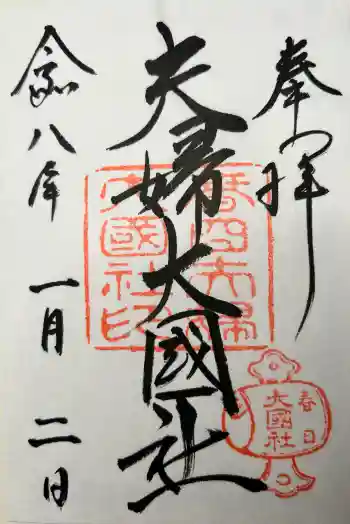 奉拝
夫婦大國社
令八年
一月二日
春日夫婦大國社印
春日
大國社